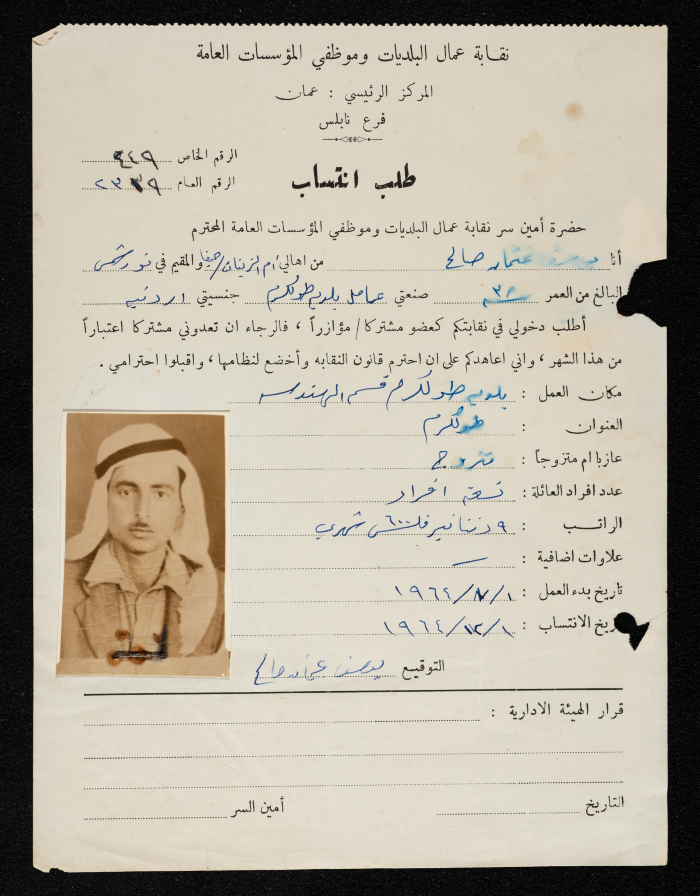 نقابة عمال البلديات وموظفي المؤسسات العامة
المركز الرئيسي : عمان
فرع نابلس
الرقم الخاص ٤٤٩
الرقم العام ٢٣٣٩
طلب انتساب
حضرة أمين سر نقابة عمال البلديات وموظفي المؤسسات العامة المحترم
أنا يوسف عثمان صالح من اهالي أم الزينات/حيفا والمقيم في نور شمس
البالغ من العمر ٣٨ سنه صنعتي عامل بلدية طولكرم جنسيتي اردنيه
أطلب دخولي في نقابتكم كعضو مشتركا / مؤازراً ، فالرجاء ان تعدوني مشتركا اعتباراً
من هذا الشهر ، واني اعاهدكم على ان احترم قانون النقابه وأخضع لنظامها ، واقبلوا احترامي .
مكان العمل : بلدية طولكرم قسم الهندسه
العنوان : طولكرم
عازبا ام متزوجاً : متزوج
عدد افراد العائلة : تسعة افراد
الراتب : ٩ دنانير ٦٠٠ فلس شهري
علاوات اضافية : —
تاريخ بدء العمل : ١/٧/١٩٦٢
تاريخ الانتساب : ١/١٢/١٩٦٤
التوقيع يوسف عثمان صالح
قرار الهيئة الادارية :
التاريخ أمين السر